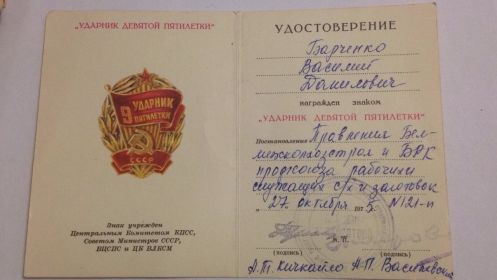 "УДАРНИК ДЕВЯТОЙ ПЯТИЛЕТКИ"
9 УДАРНИК
ПЯТИЛЕТКИ
СССР
Знак учрежден
Центральным Комитетом КПСС,
Советом Министров СССР,
ВЦСПС и ЦК ВЛКСМ
УДОСТОВЕРЕНИЕ
Барченко
Василий
Данилович
награжден знаком
"УДАРНИК ДЕВЯТОЙ ПЯТИЛЕТКИ"
Постановления Правления Бел-
межколхозстроя и БРК
профсоюза рабочих и
служащих с/х и заготовок
27 октября 1975 №121-п
М. П.
(подпись) (подпись)
А.П. Васильевский